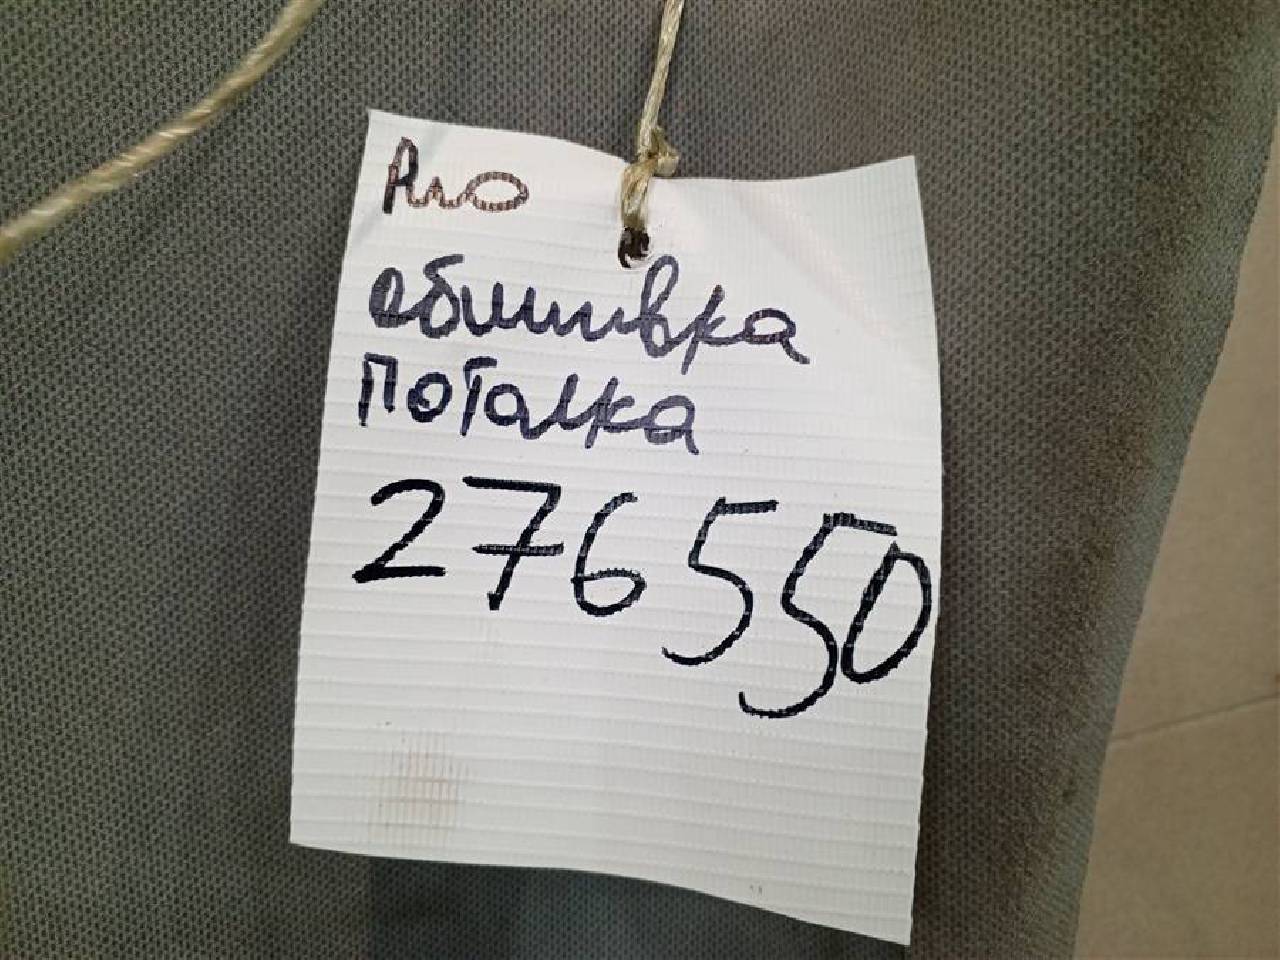 Rio
обшивка
поталка
276550